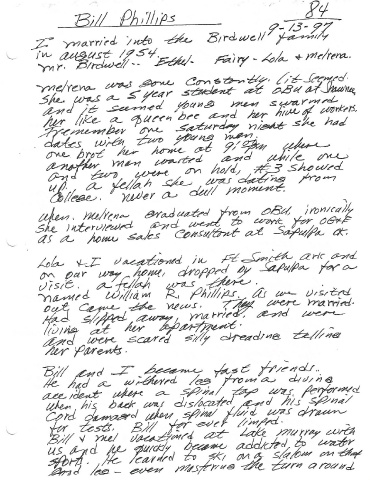 84
Bill Phillips
9-13-97
I married into the Birdwell family
in august 1954
Mr. Birdwell -- Ethel - Fairy - Lola & melrena.
melrena was gone constantly (it seemed
she was a 5 year student at OBU at Shawnee
and it seemed young men swarmed
her like a queen bee and her hive of workers.
I remember one Saturday night she had
dates with two young men.
one brot her home at 9:00pm where
another man waited and while one
and two were on hold, #3 showed
up. a fellah she was dating from
College. never a dull moment.
when melrena graduated from OBU, ironically
she interviewed and went to work for OG&E
as a home sales Consultant at Sapulpa OK.
Lola & I vacationed in Ft Smith ark and
on our way home, dropped by Sapulpa for a
visit. a fellah was there,
named William R. Phillips. as we visited
out came the news. They were married.
Had slipped away, married, and were
living at her apartment.
and were scared silly dreading telling
her parents.
Bill and I became fast friends.
He had a withered leg from a diving
accident where a spinal tap was performed
when his back was dislocated and his spinal
Cord damaged when spinal fluid was drawn
for tests. Bill for ever limped.
Bill & mel vacationed at Lake murray with
us and he quickly became addicted to water
sports. He learned to ski on a slalom on that
bad leg - even mastering the turn around